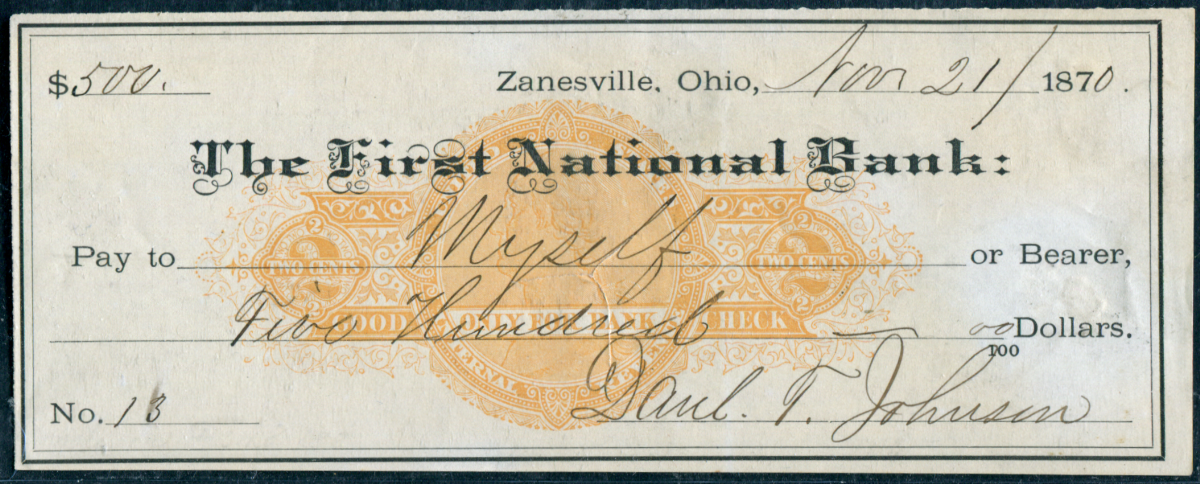 $500. Zanesville, Ohio, Nov 21/ 1870.
The First National Bank:
Pay to Myself or Bearer,
2 TWO CENTS 2 2 TWO CENTS 2
Five Hundred — 00/100 Dollars.
GOOD ONLY FOR BANK CHECK
INTERNAL REVENUE
No. 13 Danl. T. Johnson